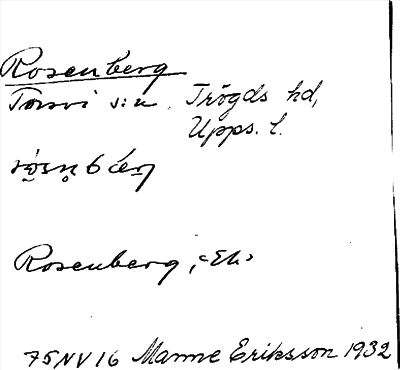 Rosenberg
Torsvi s:n, Trögds hd,
Upps. l.
Rosenberg, <Eh>
75NV16 Manne Eriksson 1932